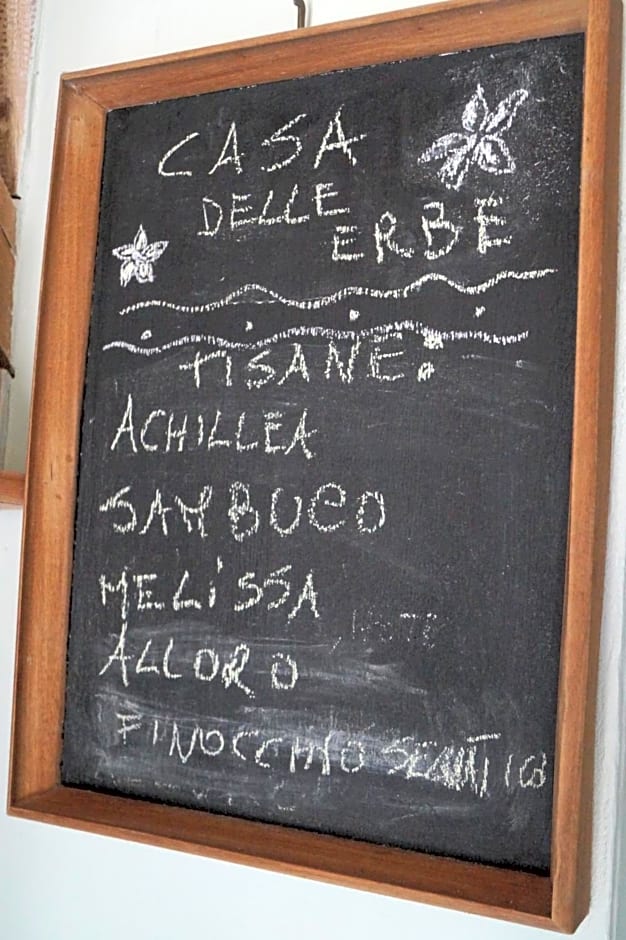 CASA
DELLE
ERBE
TISANE:
ACHILLEA
SAMBUCO
MELISSA
ALLORO
FINOCCHIO